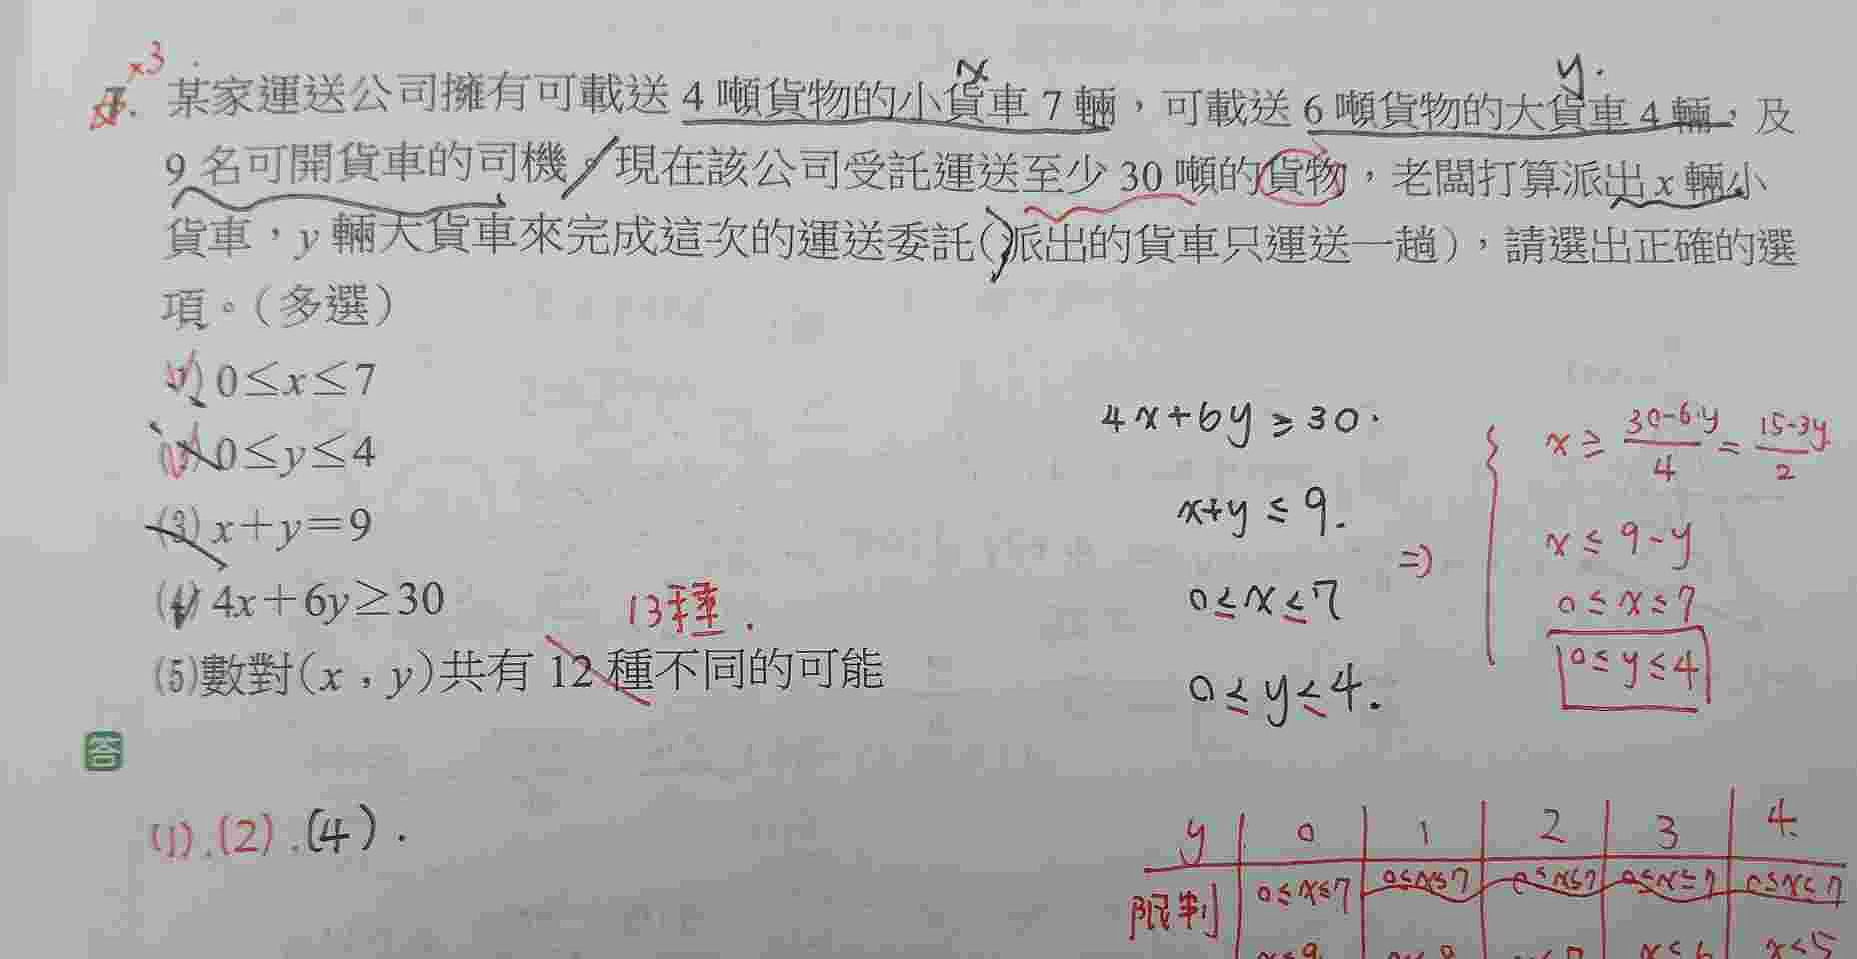 ×3
7. 某家運送公司擁有可載送 4 噸貨物的小貨車 7 輛，可載送 6 噸貨物的大貨車 4 輛，及
x
y.
9 名可開貨車的司機。現在該公司受託運送至少 30 噸的貨物，老闆打算派出 x 輛小
貨車，y 輛大貨車來完成這次的運送委託（派出的貨車只運送一趟），請選出正確的選
項。（多選）
(1) 0≤x≤7
(2) 0≤y≤4
(3) x+y=9
(4) 4x+6y≥30
13種.
(5)數對(x，y)共有 12 種不同的可能
答
(1).(2).(4).
4x+6y≥30.
x+y≤9.
0≤x≤7
0≤y≤4.
⇒
x≥ 30-6y/4 = 15-3y/2
x≤9-y
0≤x≤7
0≤y≤4
y 0 1 2 3 4
限制 0≤x≤7 0≤x≤7 0≤x≤7 0≤x≤7 0≤x≤7
x≤9 x≤6 x≤5